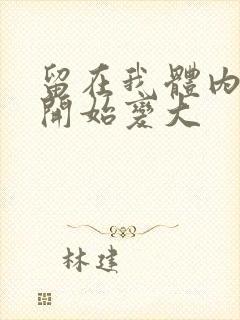 留在我體內
開始變大
林建